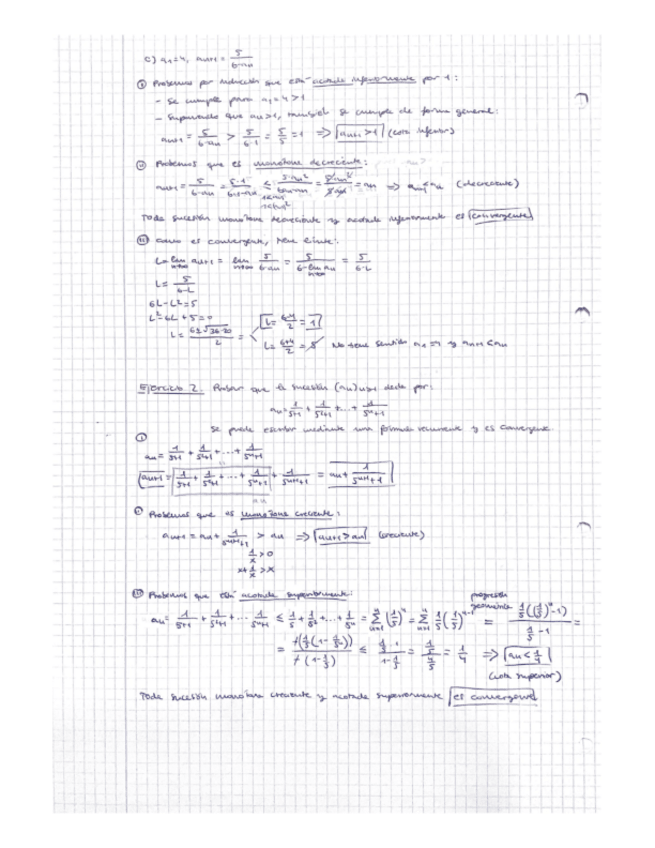 c) a₁=4, aₙ₊₁ = 5/(6-aₙ)
① Probemos por inducción que está acotada inferiormente por 1:
- Se cumple para a₁=4>1
- Suponiendo que aₙ>1, también se cumple de forma general:
aₙ₊₁ = 5/(6-aₙ) > 5/(6-1) = 5/5 = 1 ⇒ aₙ₊₁>1 (cota inferior)
② Probemos que es monótona decreciente:
aₙ₊₁ = 5/(6-aₙ) = aₙ ⇒ (decreciente)
Toda sucesión monótona decreciente y acotada inferiormente es convergente
③ Como es convergente, tiene límite:
L = lim aₙ₊₁ = lim 5/(6-aₙ) = 5/(6-lim aₙ) = 5/(6-L)
L = 5/(6-L)
6L-L²=5
L²-6L+5=0
L = (6±√(36-20))/2 =
L = (6-4)/2 = 1
L = (6+4)/2 = 5 No tiene sentido a₁=4 y aₙ₊₁<aₙ
Ejercicio 2. Probar que la sucesión (aₙ)ₙ≥₁ dada por:
aₙ = 1/(5+1) + 1/(5²+1) + ... + 1/(5ⁿ+1)
se puede escribir mediante una fórmula recurrente y es convergente.
①
aₙ = 1/(5+1) + 1/(5²+1) + ... + 1/(5ⁿ+1)
aₙ₊₁ = 1/(5+1) + 1/(5²+1) + ... + 1/(5ⁿ+1) + 1/(5ⁿ⁺¹+1) = aₙ + 1/(5ⁿ⁺¹+1)
aₙ
② Probemos que es monótona creciente:
aₙ₊₁ = aₙ + 1/(5ⁿ⁺¹+1) > aₙ ⇒ aₙ₊₁>aₙ (creciente)
1/x > 0
x + 1/x > x
③ Probemos que está acotada superiormente:
progresión
geométrica
aₙ = 1/(5+1) + 1/(5²+1) + ... + 1/(5ⁿ+1) ≤ 1/5 + 1/5² + ... + 1/5ⁿ = Σ (1/5)ⁿ = Σ 1/5 (1/5)ⁿ⁻¹ = (1/5((1/5)ⁿ-1))/(1/5 - 1) =
= (-(1/5(1-1/5ⁿ)))/(-(1-1/5)) ≤ (1/5 · 1)/(1-1/5) = (1/5)/(4/5) = 1/4 ⇒ aₙ < 1/4
(cota superior)
Toda sucesión monótona creciente y acotada superiormente es convergente